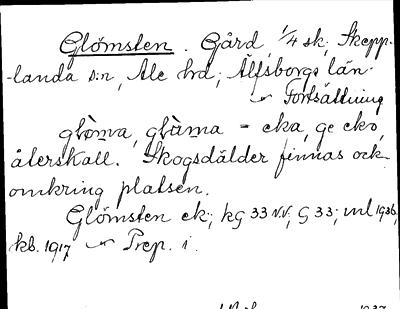 Glömsten. Gård, 1/4 sk; Skepp-
-landa s:n, Ale hd; Älfsborgs län.
Fortsättning
glòma, glàma = eka, ge eko,
återskall. Skogsdälder finnas ock
omkring platsen.
Glömsten ek; kg 33 NV; G 33; ml 1936,
kb. 1917 Prep. i.